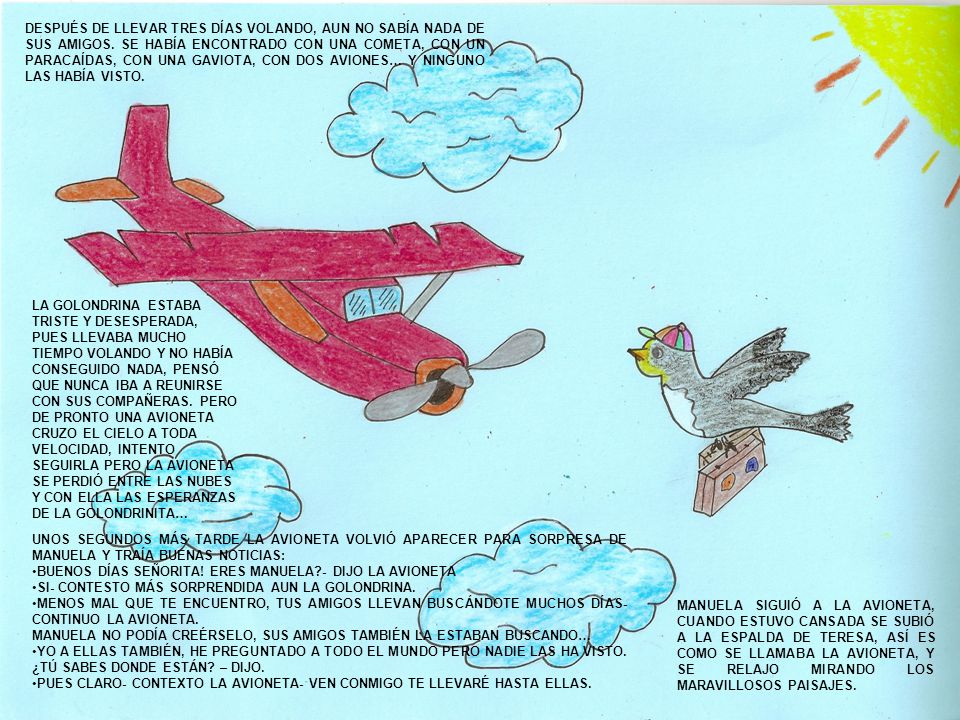 DESPUÉS DE LLEVAR TRES DÍAS VOLANDO, AUN NO SABÍA NADA DE
SUS AMIGOS. SE HABÍA ENCONTRADO CON UNA COMETA, CON UN
PARACAÍDAS, CON UNA GAVIOTA, CON DOS AVIONES... Y NINGUNO
LAS HABÍA VISTO.
LA GOLONDRINA ESTABA
TRISTE Y DESESPERADA,
PUES LLEVABA MUCHO
TIEMPO VOLANDO Y NO HABÍA
CONSEGUIDO NADA, PENSÓ
QUE NUNCA IBA A REUNIRSE
CON SUS COMPAÑERAS. PERO
DE PRONTO UNA AVIONETA
CRUZO EL CIELO A TODA
VELOCIDAD, INTENTO
SEGUIRLA PERO LA AVIONETA
SE PERDIÓ ENTRE LAS NUBES
Y CON ELLA LAS ESPERANZAS
DE LA GOLONDRINITA...
UNOS SEGUNDOS MÁS TARDE LA AVIONETA VOLVIÓ APARECER PARA SORPRESA DE
MANUELA Y TRAÍA BUENAS NOTICIAS:
•BUENOS DÍAS SEÑORITA! ERES MANUELA?- DIJO LA AVIONETA
•SI- CONTESTO MÁS SORPRENDIDA AUN LA GOLONDRINA.
•MENOS MAL QUE TE ENCUENTRO, TUS AMIGOS LLEVAN BUSCÁNDOTE MUCHOS DÍAS-
CONTINUO LA AVIONETA.
MANUELA NO PODÍA CREÉRSELO, SUS AMIGOS TAMBIÉN LA ESTABAN BUSCANDO...
•YO A ELLAS TAMBIÉN, HE PREGUNTADO A TODO EL MUNDO PERO NADIE LAS HA VISTO.
¿TÚ SABES DONDE ESTÁN? – DIJO.
•PUES CLARO- CONTEXTO LA AVIONETA- VEN CONMIGO TE LLEVARÉ HASTA ELLAS.
MANUELA SIGUIÓ A LA AVIONETA,
CUANDO ESTUVO CANSADA SE SUBIÓ
A LA ESPALDA DE TERESA, ASÍ ES
COMO SE LLAMABA LA AVIONETA, Y
SE RELAJO MIRANDO LOS
MARAVILLOSOS PAISAJES.